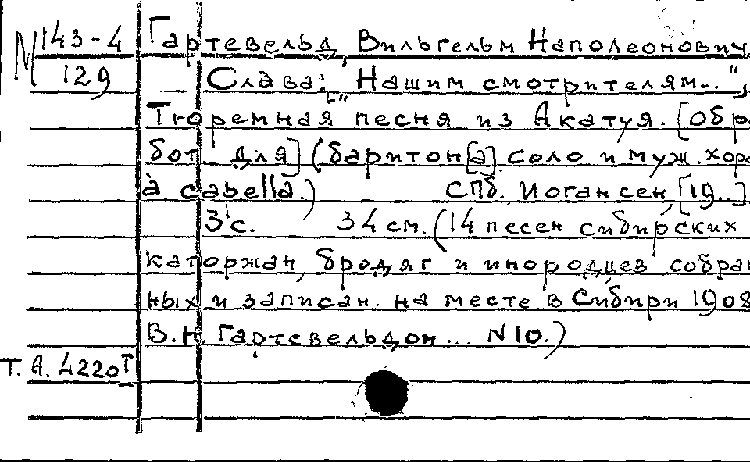 М 143-4 Гартевельд, Вильгельм Наполеонович
129 Слава: ["Нашим смотрителям..",
Тюремная песня из Акатуя. [Обра
бот. для] (баритон[а] соло и муж. хора
à capella.) СПб. Иогансен, [19..]
3 с. 34 см. (14 песен сибирских
каторжан, бродяг и инородцев собран
ных и записан. на месте в Сибири 1908
В.Н. Гартевельдом ... N 10.)
Т. А. 4220т